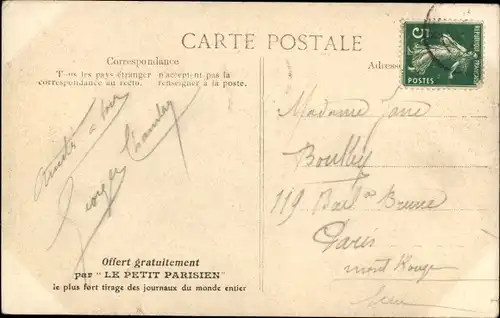 CARTE POSTALE
Correspondance
Tous les pays étranger n'acceptent pas la
correspondance au recto. renseigner à la poste.
Adresse
5
REPUBLIQUE FRANÇAISE
POSTES
Madame
119
Brune
Paris
Mont Rouge
Georges
Offert gratuitement
par "LE PETIT PARISIEN"
le plus fort tirage des journaux du monde entier